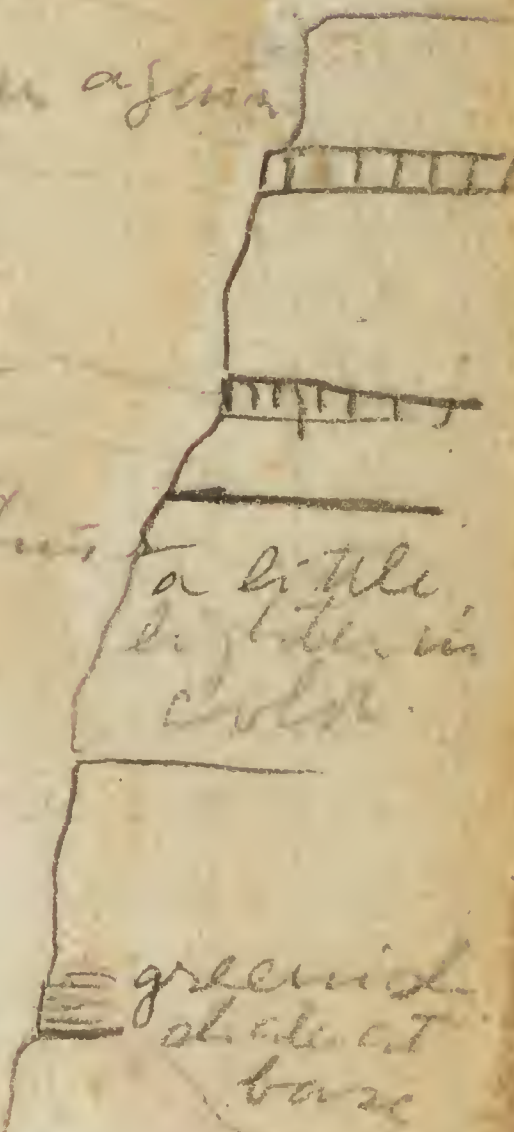 a little
lighter in
color.
greenish
shale at
base